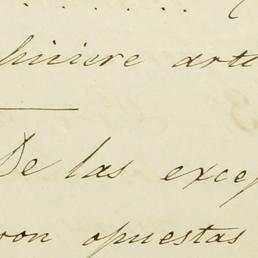 hiciere arte
De las excep
son opuestas